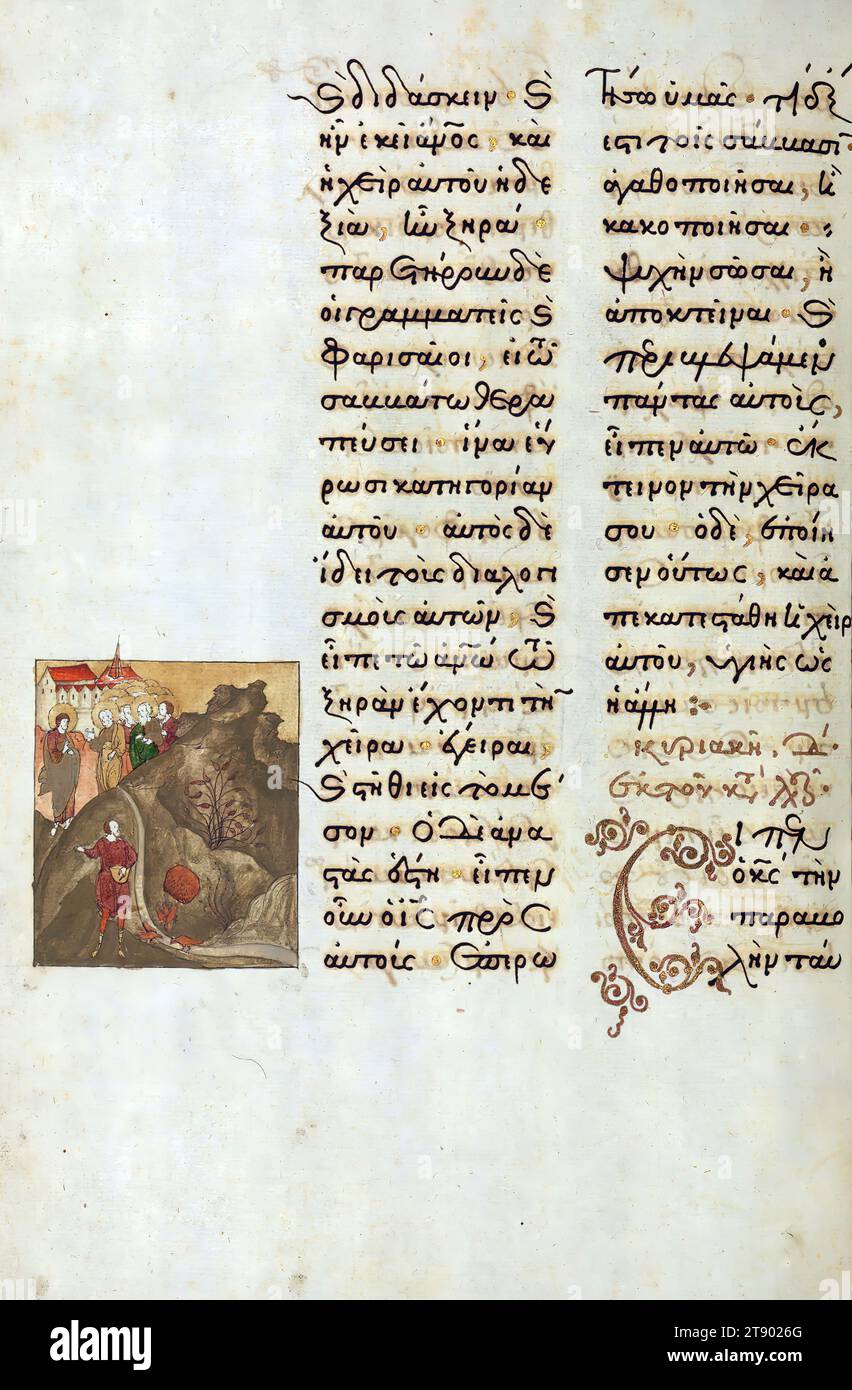 ϗ διδάσκειν · ϗ
ἦν ἐκεῖ ἀνος, καὶ
ἡ χεὶρ αὐτοῦ ἡ δε
ξιὰ, ἦν ξηρά ·
παρετήρουν δὲ
οἱ γραμματεῖς ϗ
φαρισαῖοι, εἰ ἐν τῷ
σαββάτω θερα
πεύσει · ἵνα εὕ
ρωσι κατηγορίαν
αὐτοῦ · αὐτὸς δὲ
ἤδει τοὺς διαλογι
σμοὺς αὐτῶν, ϗ
εἶπε τῶ ἀνω τῶ
ξηρὰν ἔχοντι τὴν
χεῖρα · ἔγειραι,
ϗ στῆθι εἰς τὸ μέ
σον · ὁ δὲ ἀνα
στὰς ἔστη · εἶπεν
οὖν ὁ ις πρὸς
αὐτοὺς · ἐπερω
τήσω ὑμᾶς · τί ἔξ
εστι τοῖς σάββασιν
ἀγαθοποιῆσαι, ἢ
κακοποιῆσαι ·
ψυχὴν σῶσαι, ἢ
ἀποκτεῖναι · ϗ
περιβλεψάμενος
πάντας αὐτοὺς,
εἶπεν αὐτῶ · ἔκ
τεινον τὴν χεῖρα
σου · ὁ δὲ, ἐποίη
σεν οὕτως, καὶ ἀ
πεκατεστάθη ἡ χεὶρ
αὐτοῦ, ὑγιὴς ὡς
ἡ ἄλλη :·
κυριακὴ, Δ
ἐκ τοῦ κατὰ λκ
Εἶπεν
ὁ κς τὴν
παραβο
λὴν ταύ
alamy
Image ID: 2T9026G
www.alamy.com